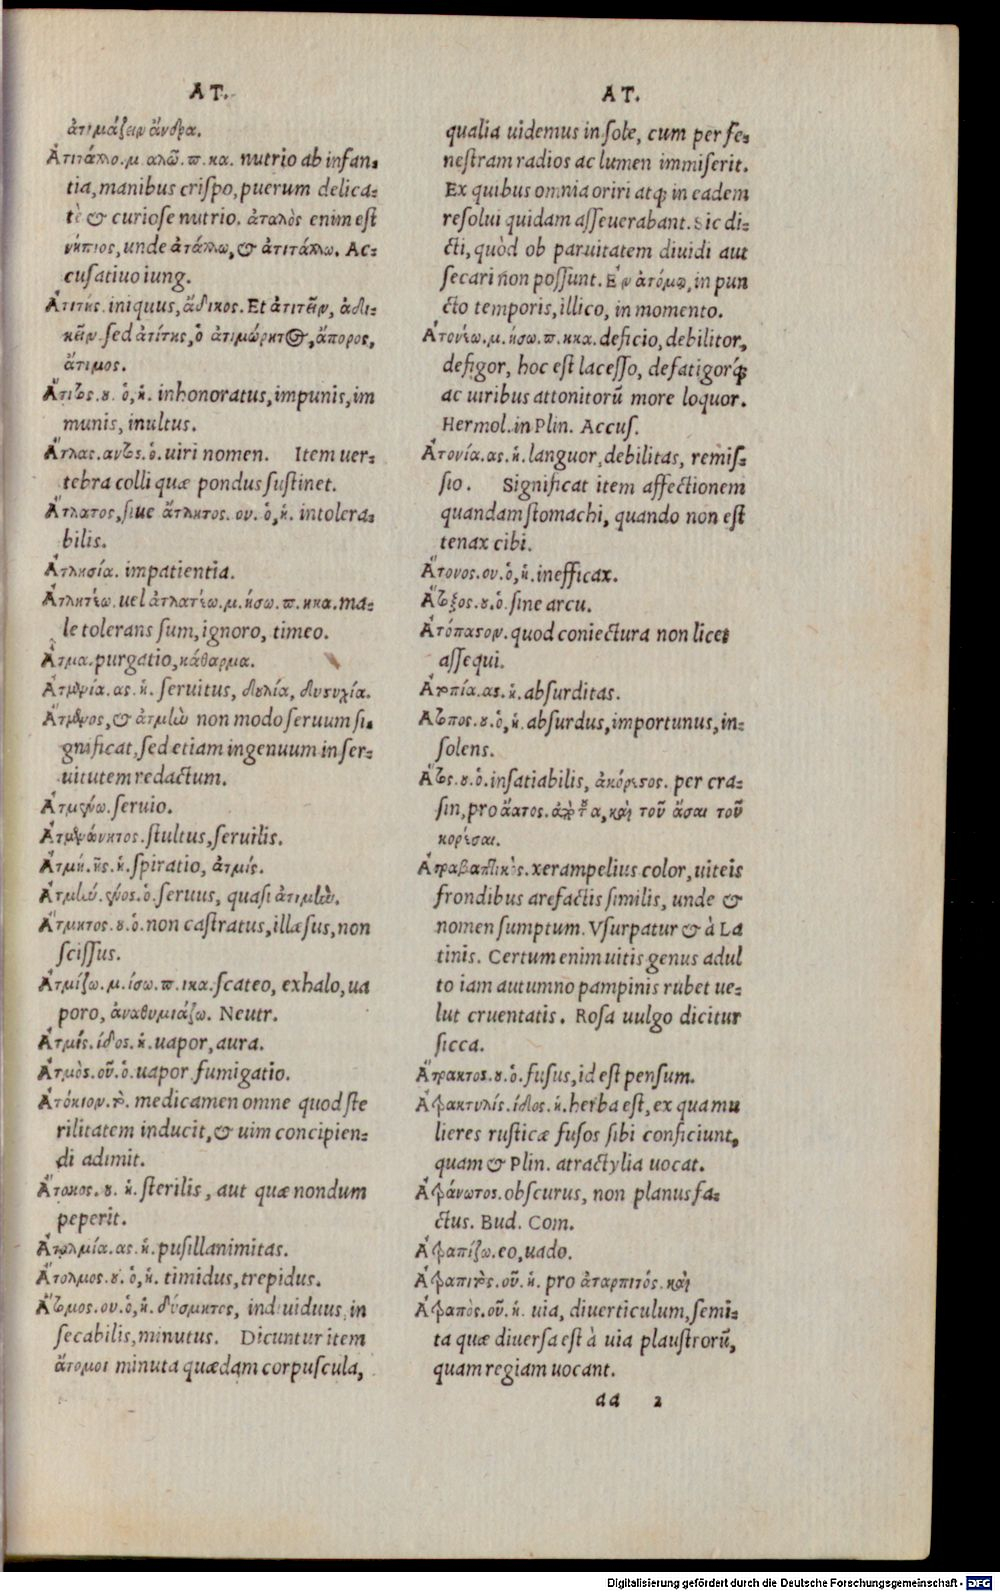 AT.
ἀτιμάζειν ἄνδρα.
Ἀτιτάλλο.μ.αλῶ.π.κα. nutrio ab infan-
tia, manibus crispo, puerum delica-
tè & curiose nutrio. ἀταλὸς enim est
νήπιος, unde ἀτάλλω, & ἀτιτάλλω. Ac-
cusatiuo iung.
Ἀτιτής. iniquus, ἄδικος. Et ἀτιτεῖν, ἀδι-
κεῖν. sed ἀτίτης, ὁ ἀτιμώρητος, ἄπορος,
ἄτιμος.
Ἄτιτος.ου.ὁ,ἡ. inhonoratus, impunis, im
munis, inultus.
Ἄτλας.αντος.ὁ. uiri nomen. Item uer-
tebra colli quæ pondus sustinet.
Ἄτλατος, siue ἄτλητος.ου.ὁ,ἡ. intolera-
bilis.
Ἀτλησία. impatientia.
Ἀτλητέω. uel ἀτλατέω.μ.ήσω.π.ηκα. ma-
le tolerans sum, ignoro, timeo.
Ἄτμα. purgatio, κάθαρμα.
Ἀτμενία.ας.ἡ. seruitus, δουλία, δυστυχία.
Ἄτμενος, & ἀτμὴν non modo seruum si-
gnificat, sed etiam ingenuum in ser-
uitutem redactum.
Ἀτμεύω. seruio.
stultus, seruilis.
Ἀτμή.ῆς.ἡ. spiratio, ἀτμίς.
Ἀτμήν.ένος.ὁ. seruus, quasi ἀτιμήν.
Ἄτμητος.ου.ὁ. non castratus, illæsus, non
scissus.
Ἀτμίζω.μ.ίσω.π.ικα. scateo, exhalo, ua
poro, ἀναθυμιάζω. Neutr.
Ἀτμίς.ίδος.ἡ. uapor, aura.
Ἀτμὸς.οῦ.ὁ. uapor fumigatio.
Ἀτόκιον.τὸ. medicamen omne quod ste
rilitatem inducit, & uim concipien-
di adimit.
Ἄτοκος.ου.ἡ. sterilis, aut quæ nondum
peperit.
Ἀτολμία.ας.ἡ. pusillanimitas.
Ἄτολμος.ου.ὁ,ἡ. timidus, trepidus.
Ἄτομος.ου.ὁ,ἡ. δύσμητος, indiuiduus, in
secabilis, minutus. Dicuntur item
ἄτομοι minuta quædam corpuscula,
AT.
qualia uidemus in sole, cum per fe-
nestram radios ac lumen immiserit.
Ex quibus omnia oriri atq; in eadem
resolui quidam asseuerabant. Sic di-
cti, quòd ob paruitatem diuidi aut
secari non possunt. Ἐν ἀτόμῳ, in pun
cto temporis, illico, in momento.
Ἀτονέω.μ.ήσω.π.ηκα. deficio, debilitor,
defigor, hoc est lacesso, defatigorq́;
ac uiribus attonitorũ more loquor.
Hermol. in Plin. Accus.
Ἀτονία.ας.ἡ. languor, debilitas, remis-
sio. Significat item affectionem
quandam stomachi, quando non est
tenax cibi.
Ἄτονος.ου.ὁ,ἡ. inefficax.
Ἄτοξος.ου.ὁ. sine arcu.
Ἀτόπατον. quod coniectura non licet
assequi.
Ἀτοπία.ας.ἡ. absurditas.
Ἄτοπος.ου.ὁ,ἡ. absurdus, importunus, in-
solens.
Ἄτος.ου.ὁ. insatiabilis, ἀκόρεστος. per cra-
sin, pro ἄατος. ἀπὸ τοῦ α, καὶ τοῦ ἄσαι τοῦ
κορέσαι.
Ἀτραβαπτικὸς. xerampelius color, uiteis
frondibus arefactis similis, unde &
nomen sumptum. Vsurpatur & à La
tinis. Certum enim uitis genus adul
to iam autumno pampinis rubet ue-
lut cruentatis. Rosa uulgo dicitur
sicca.
Ἄτρακτος.ου.ὁ. fusus, id est pensum.
Ἀτρακτυλίς.ίδος.ἡ. herba est, ex qua mu
lieres rusticæ fusos sibi conficiunt,
quam & Plin. atractylia uocat.
Ἀτράνωτος. obscurus, non planus fa-
ctus. Bud. Com.
Ἀτραπίζω. eo, uado.
Ἀτραπιτὸς.οῦ.ἡ. pro ἀταρπιτός. καὶ
Ἀτραπὸς.οῦ.ἡ. uia, diuerticulum, semi-
ta quæ diuersa est à uia plaustrorũ,
quam regiam uocant.
aa 2
Digitalisierung gefördert durch die Deutsche Forschungsgemeinschaft - DFG